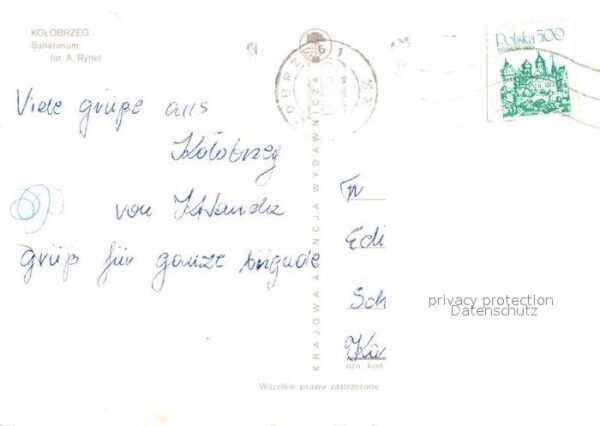 KOŁOBRZEG
Sanatorium
fot. A. Ryttel
Polska 500
Viele grüße aus
Kołobrzeg
von Wanda
Grüß für ganze brigade
KRAJOWA AGENCJA WYDAWNICZA
Edi
Sch
Ka
privacy protection
Datenschutz
Wszelkie prawa zastrzeżone